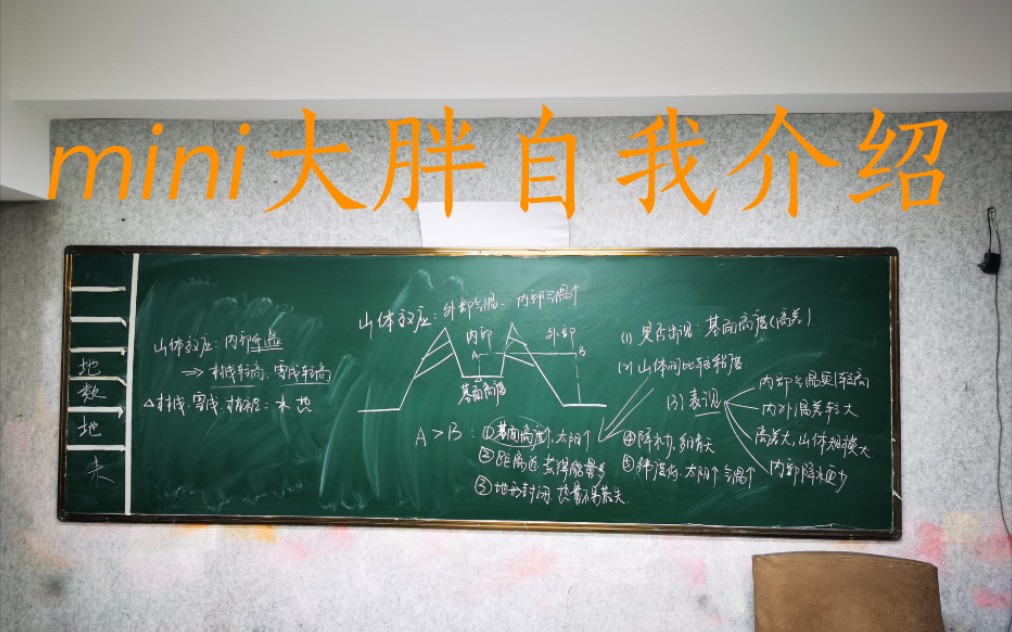 mini大胖自我介绍
地
数
地
未
山体效应：内部
⇒ 林线较高，雪线较高
△林线、雪线、植被：水 热
山体效应：外部气温 内部气温个
内部
外部
A
B
基面高度
A > B：①基面高度个，太阳个
②距离近，获得能量多
③地形封闭，热量不易散失
④降水少，多晴天
⑤纬度 太阳个 气温个
(1) 是否出现：基面高度(高差)
(2) 山体间比较
(3) 表现
内部气温更(较)高
内外温差较大
高差大，山体规模大
内部降水更少